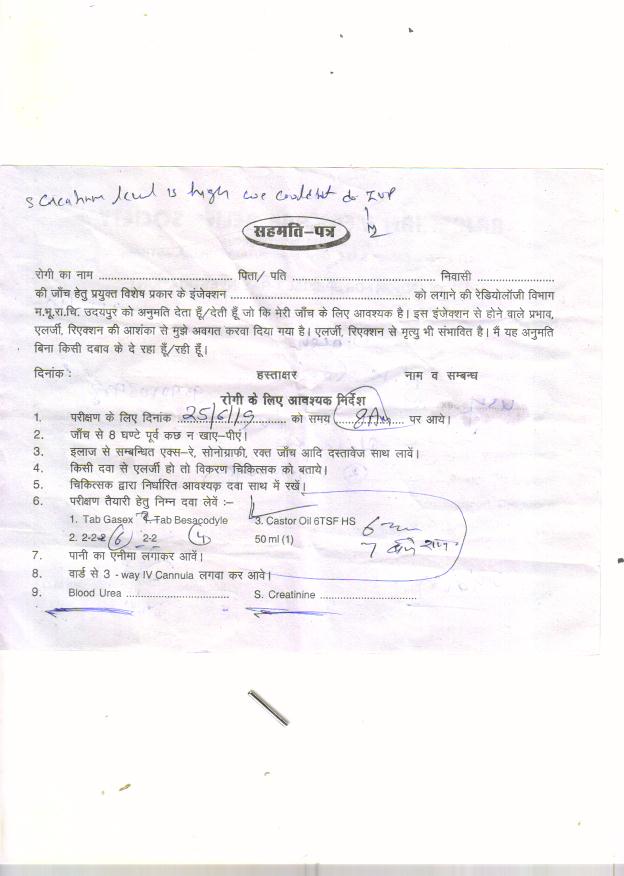 S Creatinine level is high we couldn't do IVP
सहमति-पत्र
रोगी का नाम ........................................ पिता/ पति ........................................... निवासी .......................
की जाँच हेतु प्रयुक्त विशेष प्रकार के इंजेक्शन ..................................................... को लगाने की रेडियोलॉजी विभाग
म.भू.रा.चि. उदयपुर को अनुमति देता हूँ/देती हूँ जो कि मेरी जाँच के लिए आवश्यक है। इस इंजेक्शन से होने वाले प्रभाव,
एलर्जी, रिएक्शन की आशंका से मुझे अवगत करवा दिया गया है। एलर्जी, रिएक्शन से मृत्यु भी संभावित है। मैं यह अनुमति
बिना किसी दबाव के दे रहा हूँ/रही हूँ।
दिनांक : हस्ताक्षर नाम व सम्बन्ध
रोगी के लिए आवश्यक निर्देश
1. परीक्षण के लिए दिनांक 25/6/19 को समय 8 Am पर आये।
2. जाँच से 8 घण्टे पूर्व कछ न खाए-पीएं।
3. इलाज से सम्बन्धित एक्स-रे, सोनोग्राफी, रक्त जाँच आदि दस्तावेज साथ लावें।
4. किसी दवा से एलर्जी हो तो विकरण चिकित्सक को बताये।
5. चिकित्सक द्वारा निर्धारित आवश्यक दवा साथ में रखें।
6. परीक्षण तैयारी हेतु निम्न दवा लेवें :-
1. Tab Gasex 2. Tab Besacodyle 3. Castor Oil 6TSF HS
2. 2-2-2 (6) 2-2 (4) 50 ml (1)
7. पानी का एनीमा लगाकर आवें।
8. वार्ड से 3 - way IV Cannula लगवा कर आवे।
9. Blood Urea .............................. S. Creatinine ............................